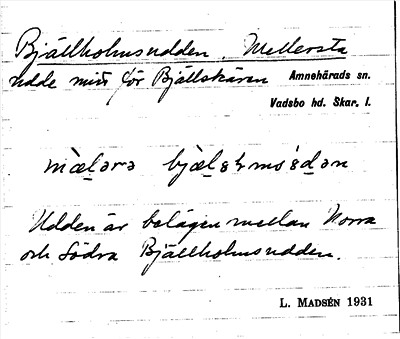 Bjällholmsudden, Mellersta
udde mitt för Bjällskären Amnehärads sn.
Vadsbo hd. Skar. l.
Udden är belägen mellan Norra
och Södra Bjällholmsudden.
L. MADSÉN 1931